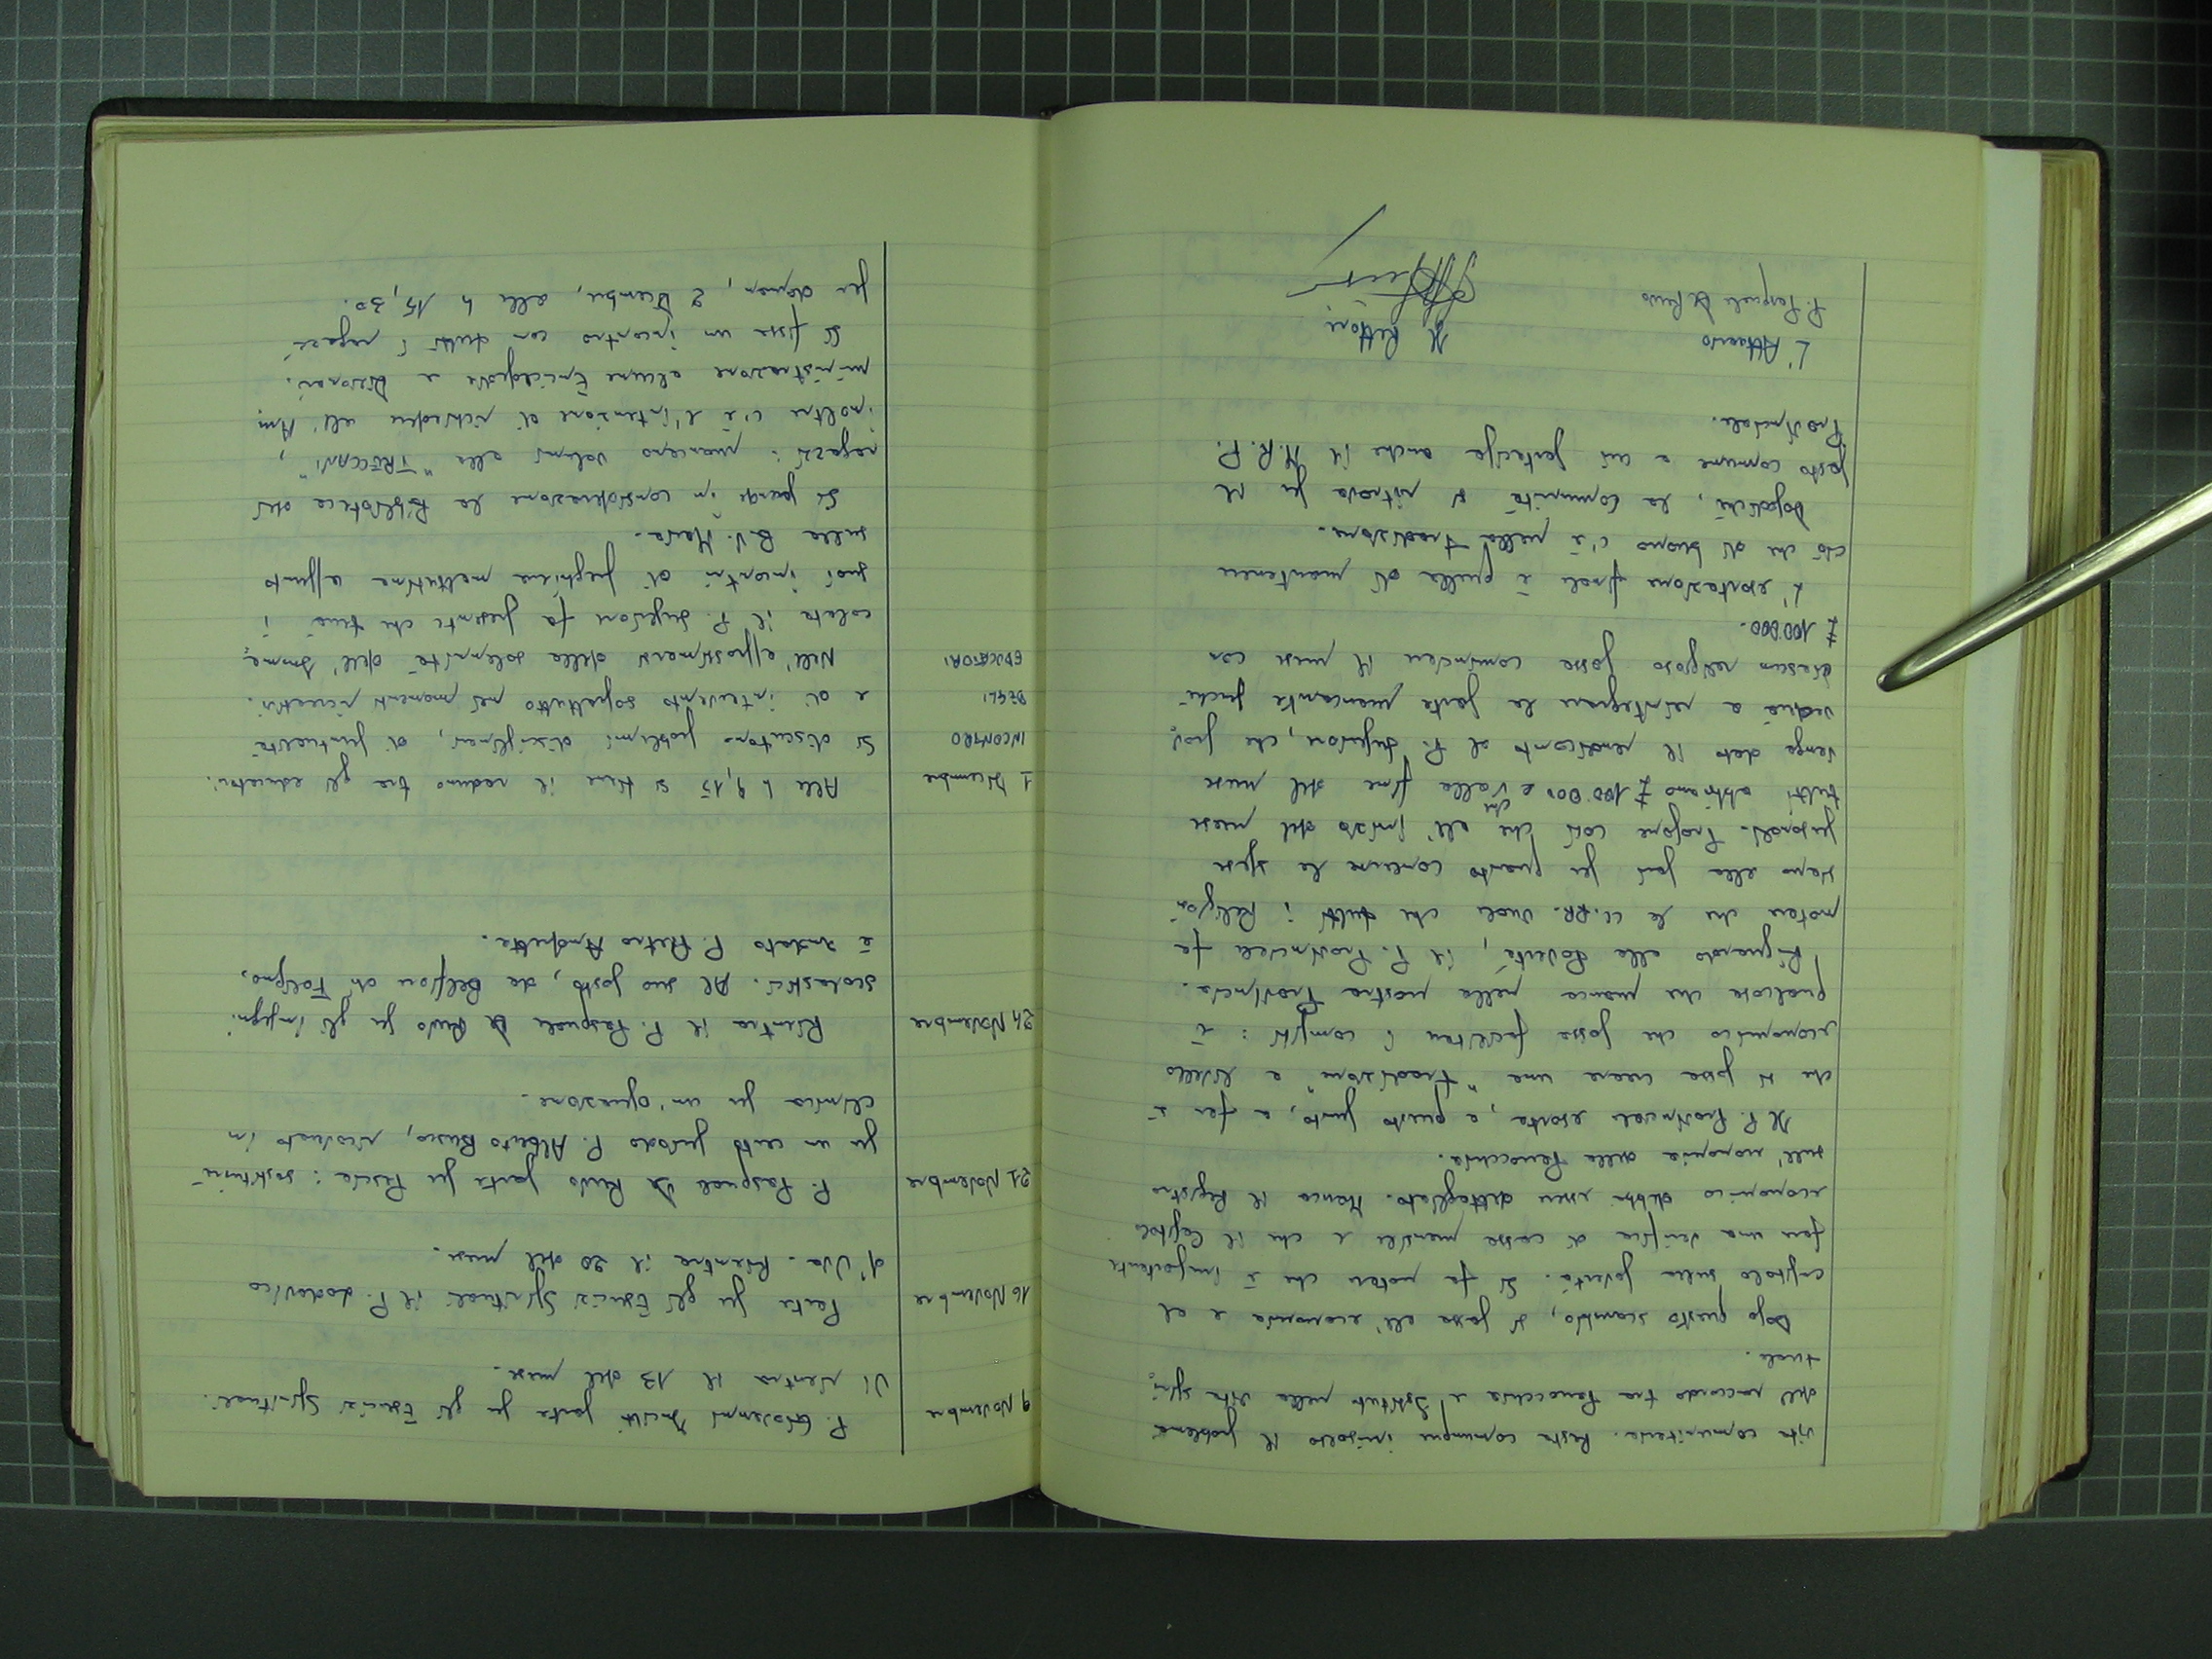 vita comunitaria. Resta comunque irrisolto il problema
del raccordo tra Parrocchia e Istituto nella vita spiri=
tuale.
Dopo questo scambio, si passa all'economia e al
capitolo sulla povertà. Si fa notare che è importante
fare una verifica di cassa mensile e che il Capitolo
economico debba essere dettagliato. Manca il Registro
sull'economia della Parrocchia.
Il P. Provinciale esorta, a questo punto, a far sì
che si possa creare una "tradizione" a livello
economico che possa facilitare i compiti: è
qualcosa che manca nella nostra Provincia.
Riguardo alla Povertà, il P. Provinciale fa
notare che le CC.RR. vuole che tutti i Religiosi
siano alla pari per quanto concerne le spese
personali. Propone così che all'inizio del mese
tutti abbiano £ 100.000 e che alla fine del mese
venga dato il rendiconto al P. Superiore, che prov=
vederà a reintegrare la parte mancante finché
ciascun religioso possa cominciare il mese con
£ 100.000.
L'esortazione finale è quella di mantenere
ciò che di buono c'è nella tradizione.
Dopodiché, la Comunità si ritrova per il
pasto comune a cui partecipa anche il M.R.P.
Provinciale.
L'Attuario Il Rettore
P. Pasquale De Ruvo
9 Novembre P. Giovanni parte per gli Esercizi Spirituali.
Vi rientra il 13 del mese.
16 Novembre Parte per gli Esercizi Spirituali il P. Lodovico
d'Uva. Rientra il 20 del mese.
21 Novembre P. Pasquale De Ruvo parte per Pescia: sostituirà
per un certo periodo P. Alberto Busco, ricoverato in
clinica per un'operazione.
24 Novembre Rientra il P. Pasquale De Ruvo per gli impegni
scolastici. Al suo posto, da Belfiore di Foligno,
è andato P. Pietro
1 Dicembre Alle h 9,15 si tiene il raduno tra gli educatori.
INCONTRO Si discutono problemi disciplinari, di puntualità
DEGLI e di intervento soprattutto nei momenti ricreativi.
EDUCATORI Nell'approssimarsi della solennità dell'Imma=
colata il P. Superiore fa presente che terrà i
suoi incontri di preghiera mattutina appunto
sulla B.V. Maria.
Si prende in considerazione la Biblioteca dei
ragazzi: mancano volumi alla "TRECCANI",
inoltre c'è l'intenzione di richiedere all'Am
ministrazione alcune Enciclopedie e Dizionari.
Si fissa un incontro con tutti i ragazzi
per domani, 2 Dicembre, alle h 15,30.